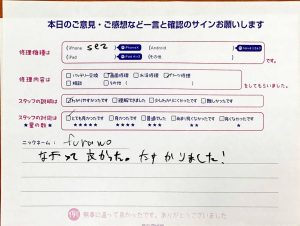 本日のご意見・ご感想など一言と確認のサインお願いします
修理機種は
iPhone se2
Android
iPad
その他
で、
修理内容は
バッテリー交換 画面修理 水没修理
相談 その他（
をしてもらいました。
スタッフの説明は
わかりやすかったです 理解できました 少しわかりにくかったです 難しかったです
スタッフの対応は
★星の数★
とても良かったです 良かったです 普通でした
ニックネーム： furawo
なおって良かった。たすかりました！
無事に直って良かったです。ありがとうございました